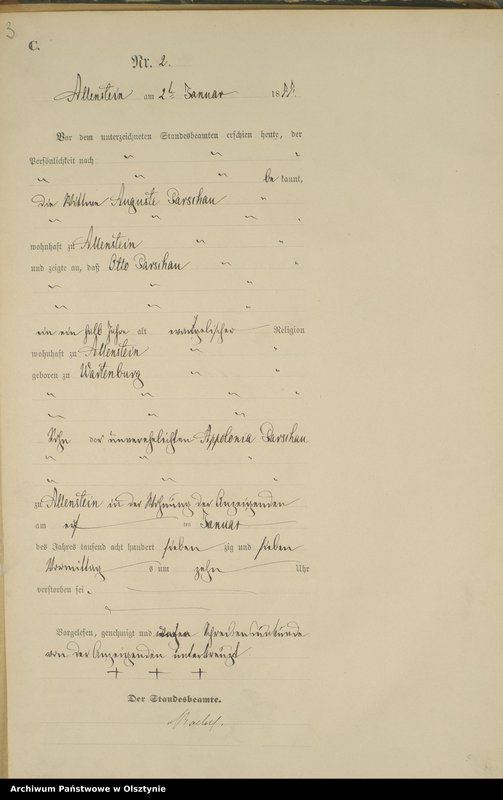 3
C.
Nr. 2.
Allenstein am 2ten Januar 1877.
Vor dem unterzeichneten Standesbeamten erschien heute, der
Persönlichkeit nach
be kannt,
die Wittwe Auguste Parschau
wohnhaft zu Allenstein
und zeigte an, daß Otto Parschau
ein ein halb Jahre alt evangelischer Religion
wohnhaft zu Allenstein
geboren zu Wartenburg
Sohn der unverehelichten Appolonia Parschau
zu Allenstein in der Wohnung der Anzeigenden
am ten Januar
des Jahres tausend acht hundert sieben zig und sieben
Vormittag s um zehn Uhr
verstorben sei.
Vorgelesen, genehmigt und wegen Schreibensunkunde
von der Anzeigenden unterkreuzt.
+ + +
Der Standesbeamte.
Archiwum Państwowe w Olsztynie